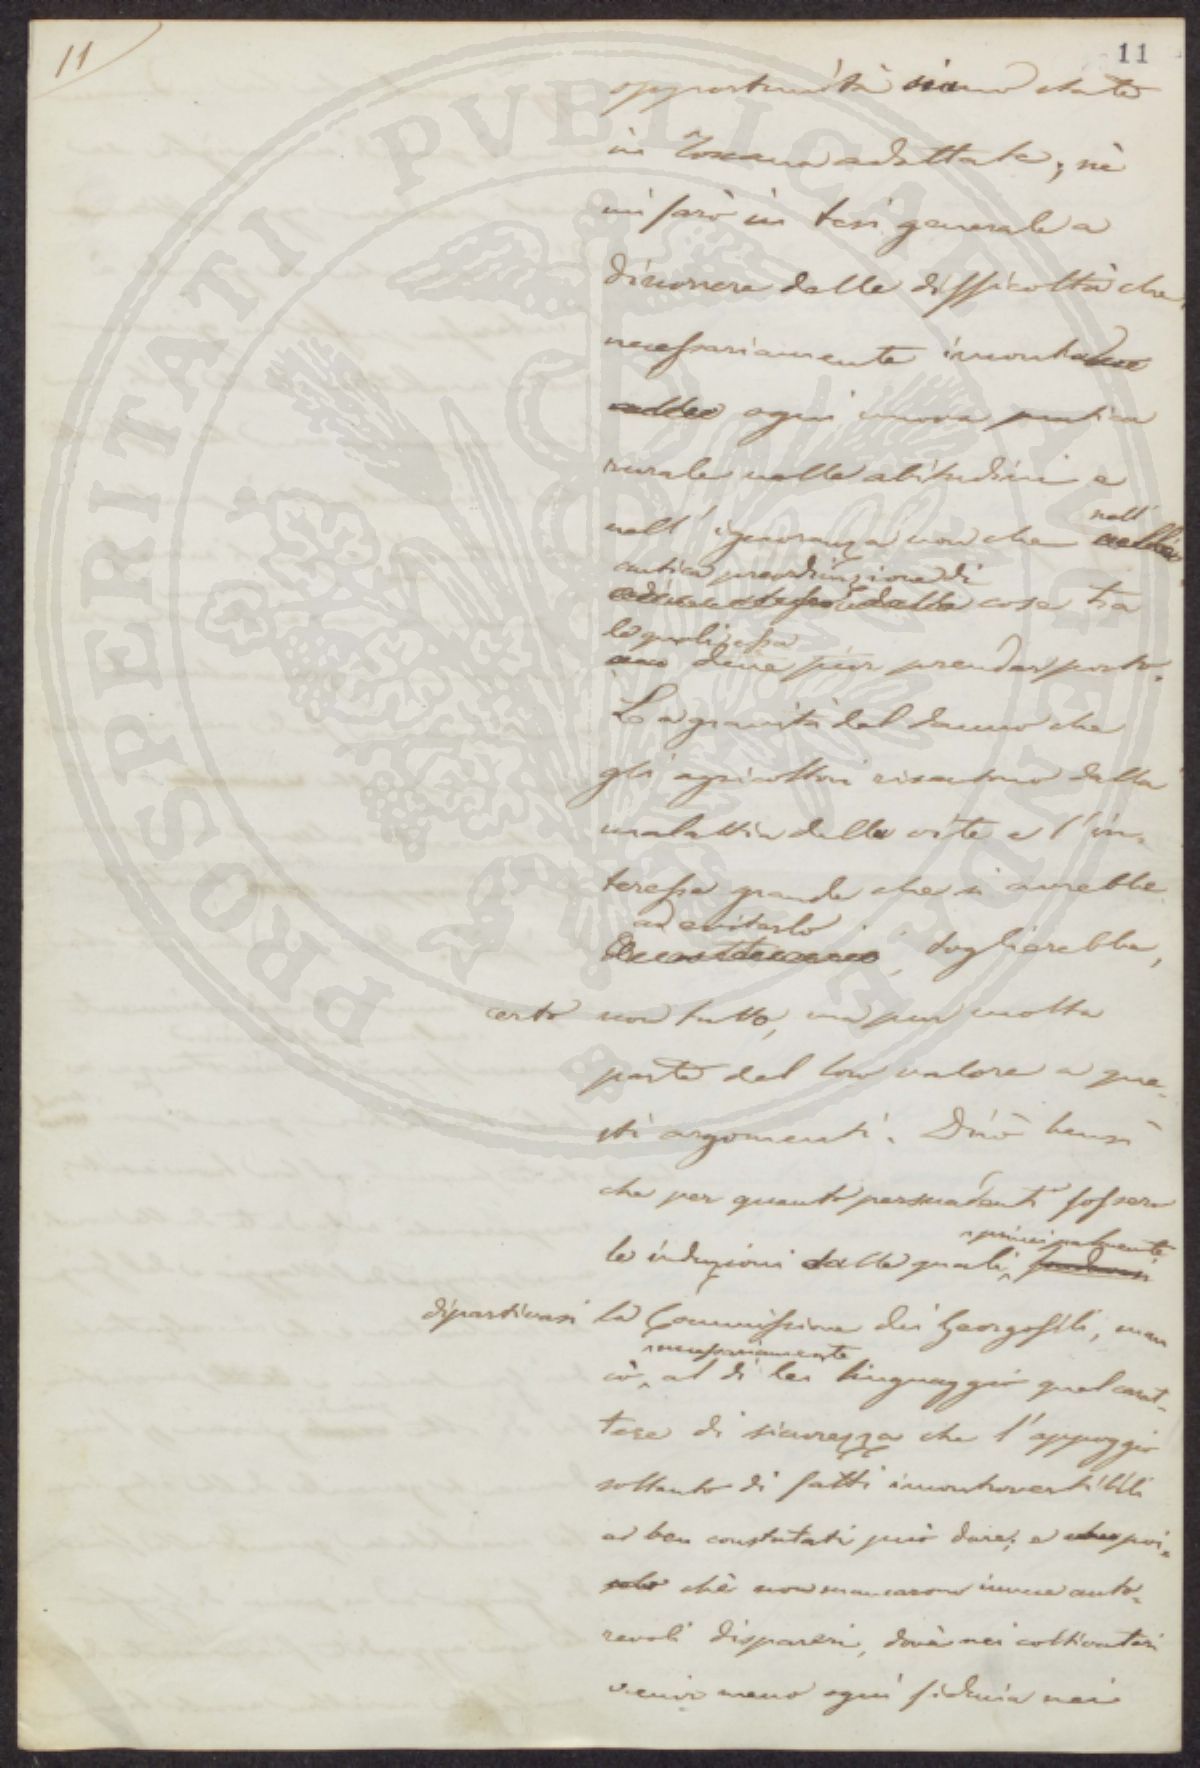 11
11
opportunità siano state
in Toscana adattate; nè
mi farò in tesi generale a
discorrere delle difficoltà che,
necessariamente incontra
ogni nuova pratica
rurale nelle abitudini e
nell'
nell' ignoranza non che
antica preordinazione di
cose tra
le quali essa
deve pur prender posto.
La gravità del danno che
gli agricoltori risentono dalla
malattia della vite e l'in-
teresse grande che si avrebbe
ad evitarlo
, toglierebbe,
certo non tutto, ma pur molta
parte del loro valore a que-
sti argomenti. Dirò bensì
che per quanto persuadenti fossero
principalmente
le induzioni dalle quali
dipartivasi la Commissione dei Georgofili, man
necessariamente
cò al di lei linguaggio quel carat-
tere di sicurezza che l'appoggio
soltanto di fatti incontrovertibili
e ben constatati può dare; e poi-
chè non mancarono invece auto-
revoli dispareri, dovè nei coltivatori
venir meno ogni fiducia nei
PROSPERITATI PVBLICAE AVGENDAE